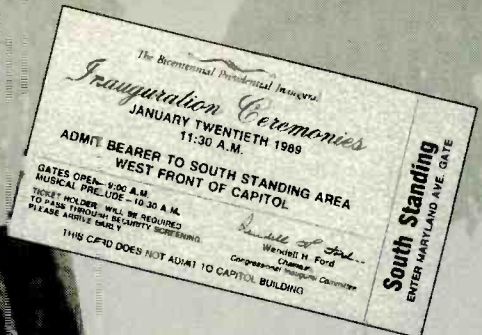 The Bicentennial Presidential Inaugural
Inauguration Ceremonies
JANUARY TWENTIETH 1989
11:30 A.M.
ADMIT BEARER TO SOUTH STANDING AREA
WEST FRONT OF CAPITOL
GATES OPEN – 9:00 A.M.
MUSICAL PRELUDE – 10:30 A.M.
TICKET HOLDER WILL BE REQUIRED
TO PASS THROUGH SECURITY SCREENING
PLEASE ARRIVE EARLY
Wendell H. Ford
Wendell H. Ford
Chairman
Congressional Inaugural Committee
THIS CARD DOES NOT ADMIT TO CAPITOL BUILDING
South Standing
ENTER MARYLAND AVE. GATE